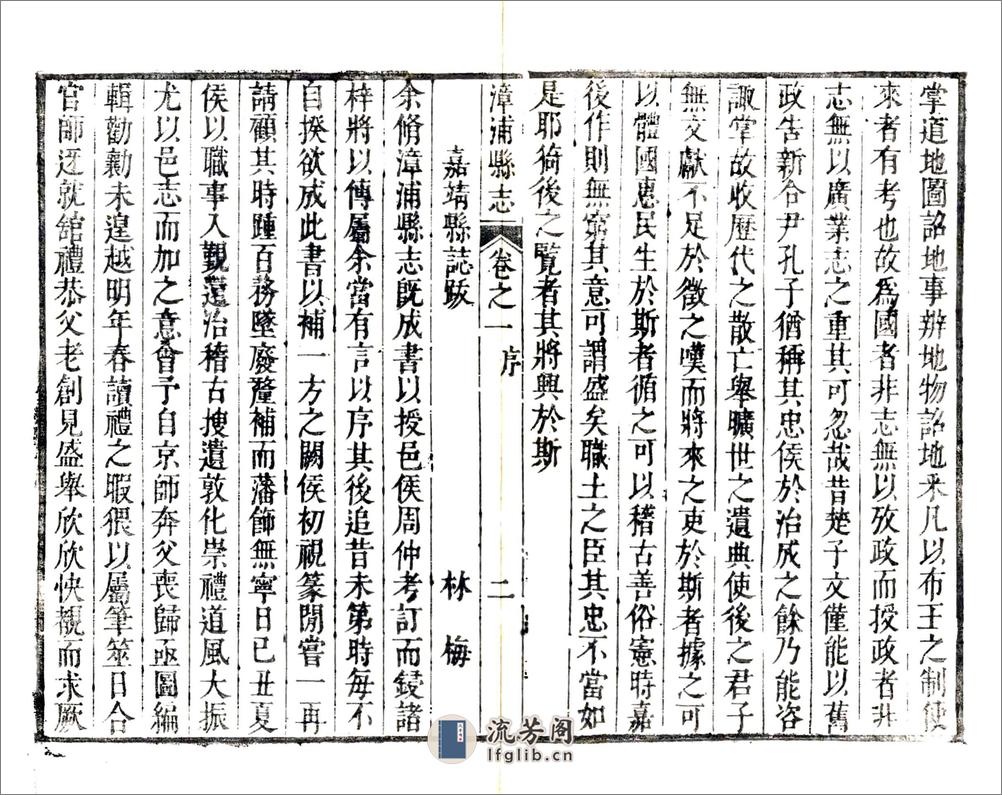 掌道地圖詔地事辨地物詔地釆凡以布王之制使
來者有考也故為國者非志無以攷政而授政者非
志無以廣業志之重其可忽哉昔楚子文僅能以舊
政告新令尹孔子猶稱其忠侯於治成之餘乃能咨
諏掌故收歷代之散亡舉曠世之遺典使後之君子
無文獻不足於徵之嘆而將來之吏於斯者據之可
以體國惠民生於斯者循之可以稽古善俗憲時嘉
後作則無窮其意可謂盛矣職土之臣其忠不當如
是耶猗後之覽者其將興於斯
漳浦縣志 卷之一 序 二
嘉靖縣誌跋 林 梅
余脩漳浦縣志旣成書以授邑侯周仲考訂而鋟諸
梓將以傳屬余當有言以序其後追昔未第時每不
自揆欲成此書以補一方之闕侯初視篆閒嘗一再
請顧其時踵百務墜廢釐補而藩飾無寧日已丑夏
侯以職事入覲還治稽古搜遺敦化崇禮道風大振
尤以邑志而加之意會予自京師奔父喪歸亟圖編
輯勸勷未遑越明年春讀禮之暇猥以屬筆筮日合
官師迓就館禮恭父老創見盛舉欣欣快覩而求厥
流芳阁
lfglib.cn